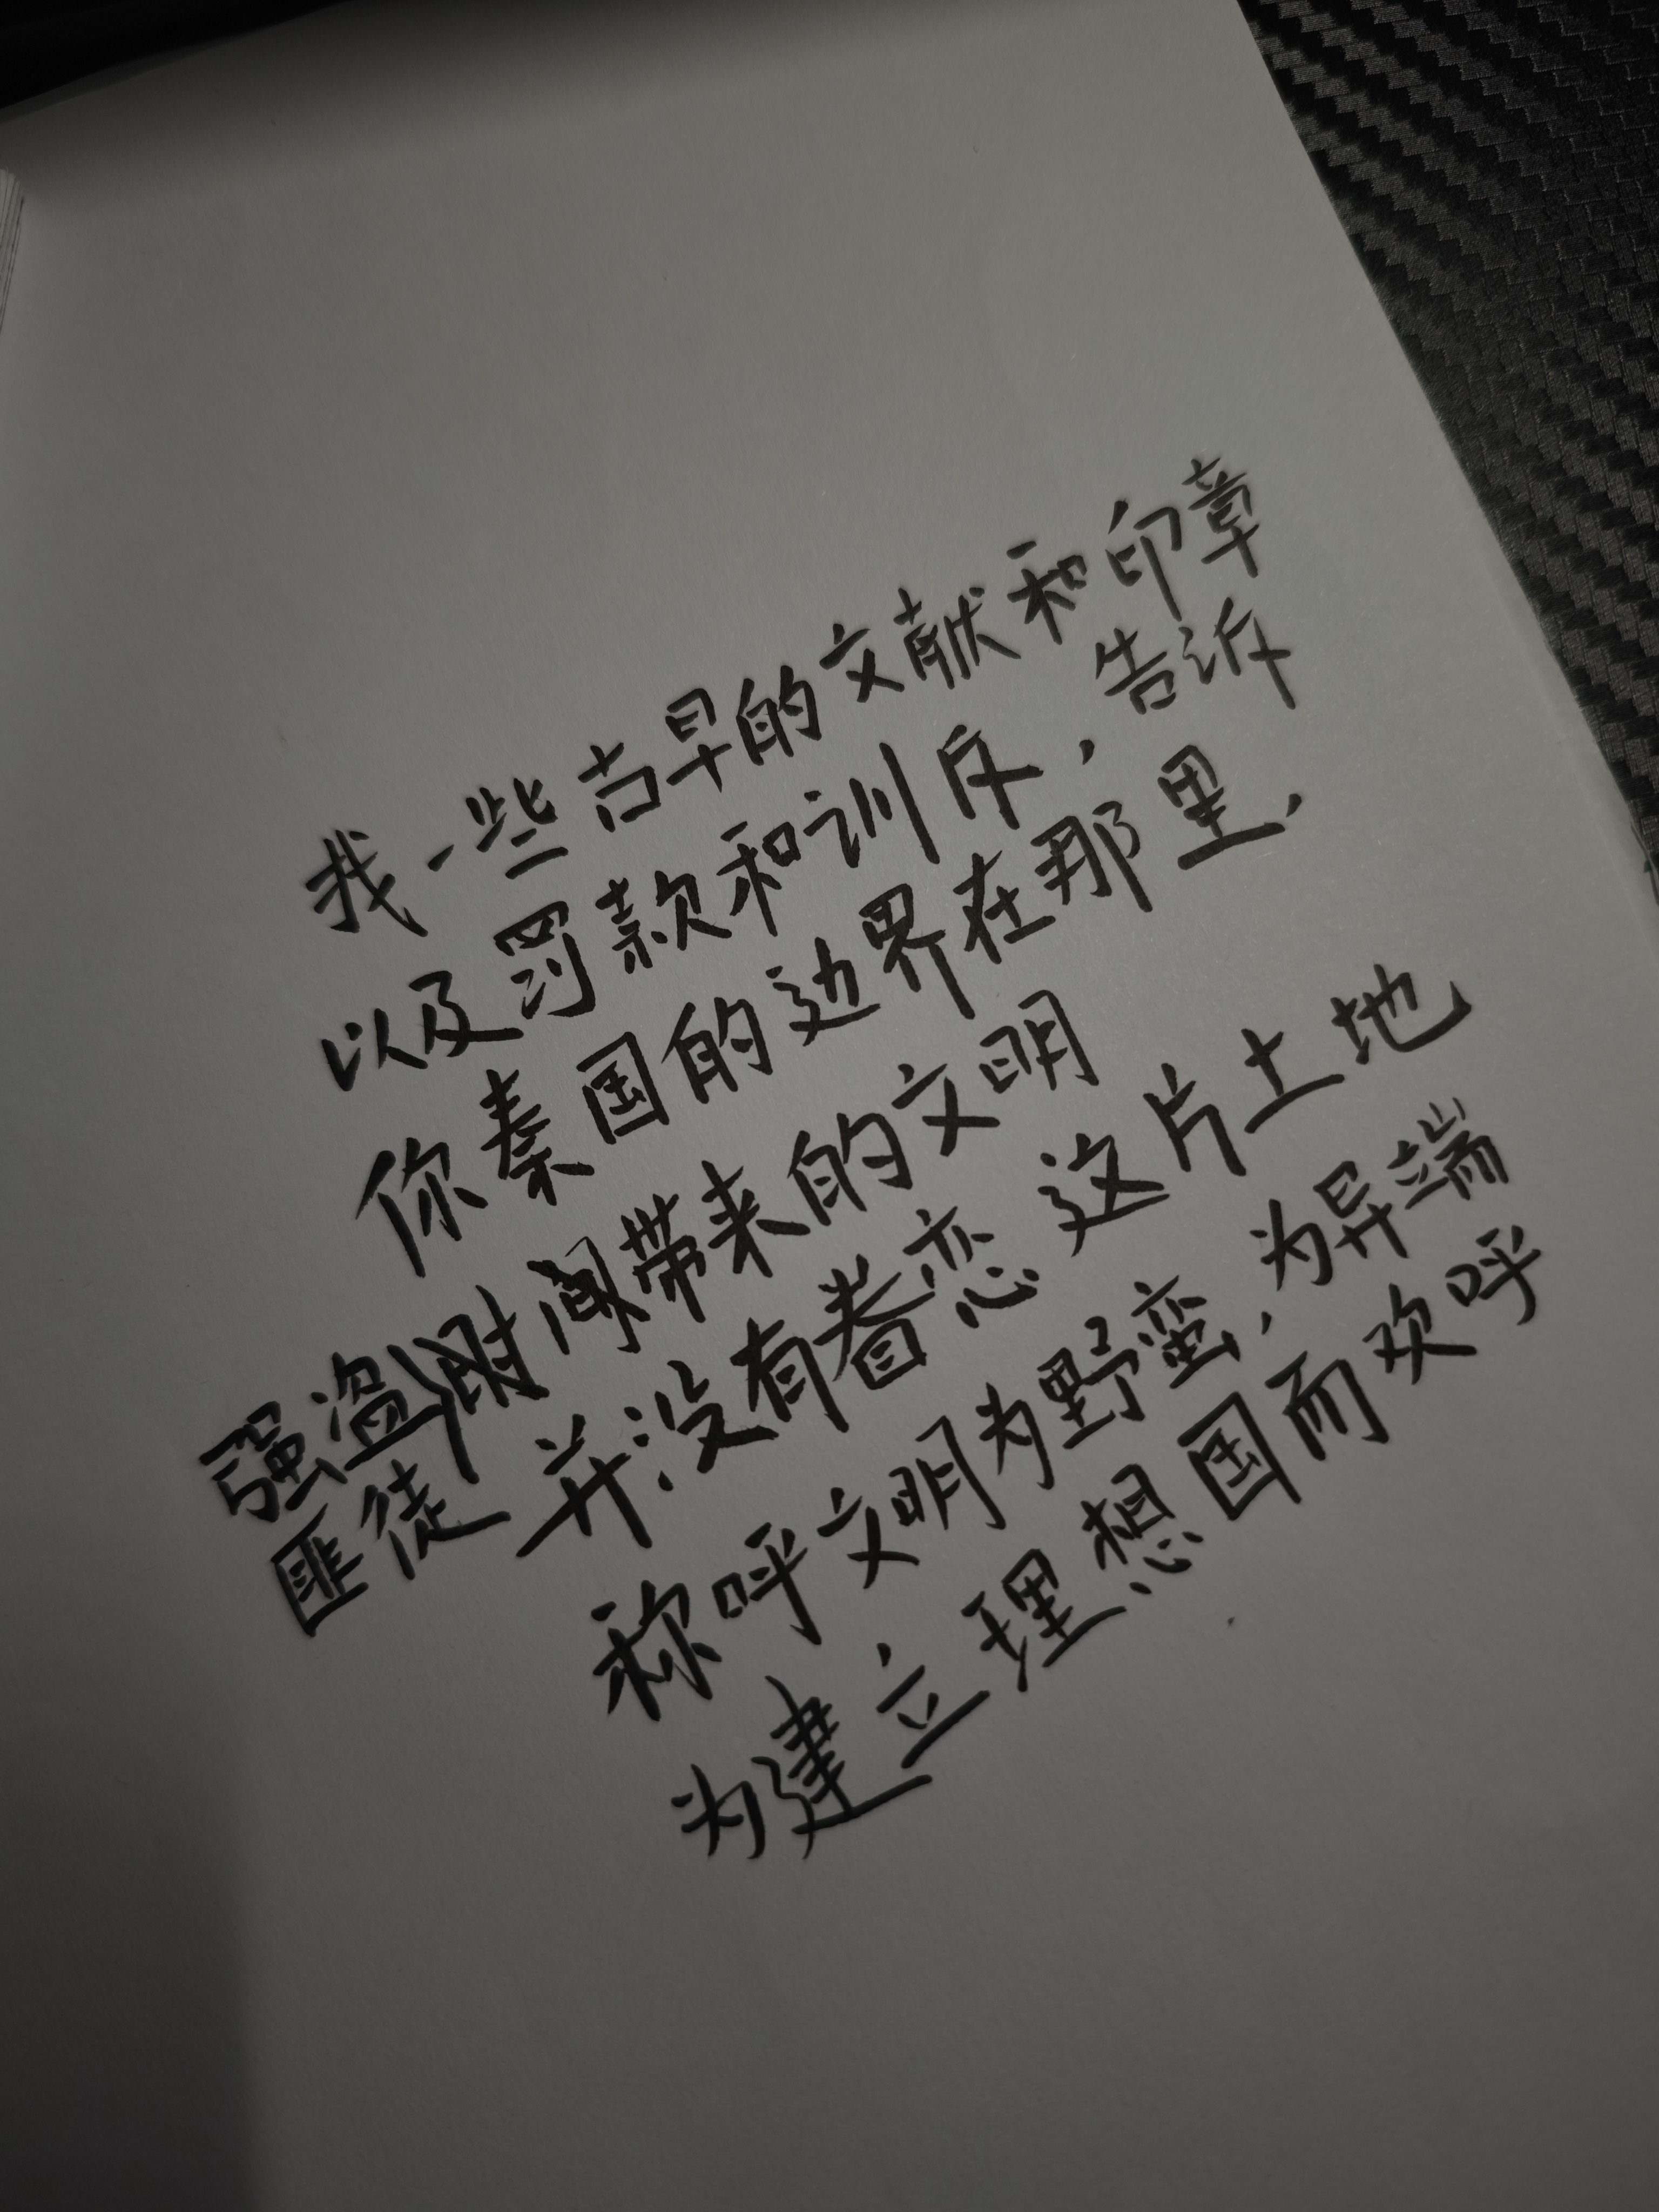 找一些古早的文献和印章
以及罚款和训斥，告诉
你秦国的边界在那里，
强盗时间带来的文明
匪徒并没有眷恋这片土地
称呼文明为野蛮，为异端
为建立理想国而欢呼